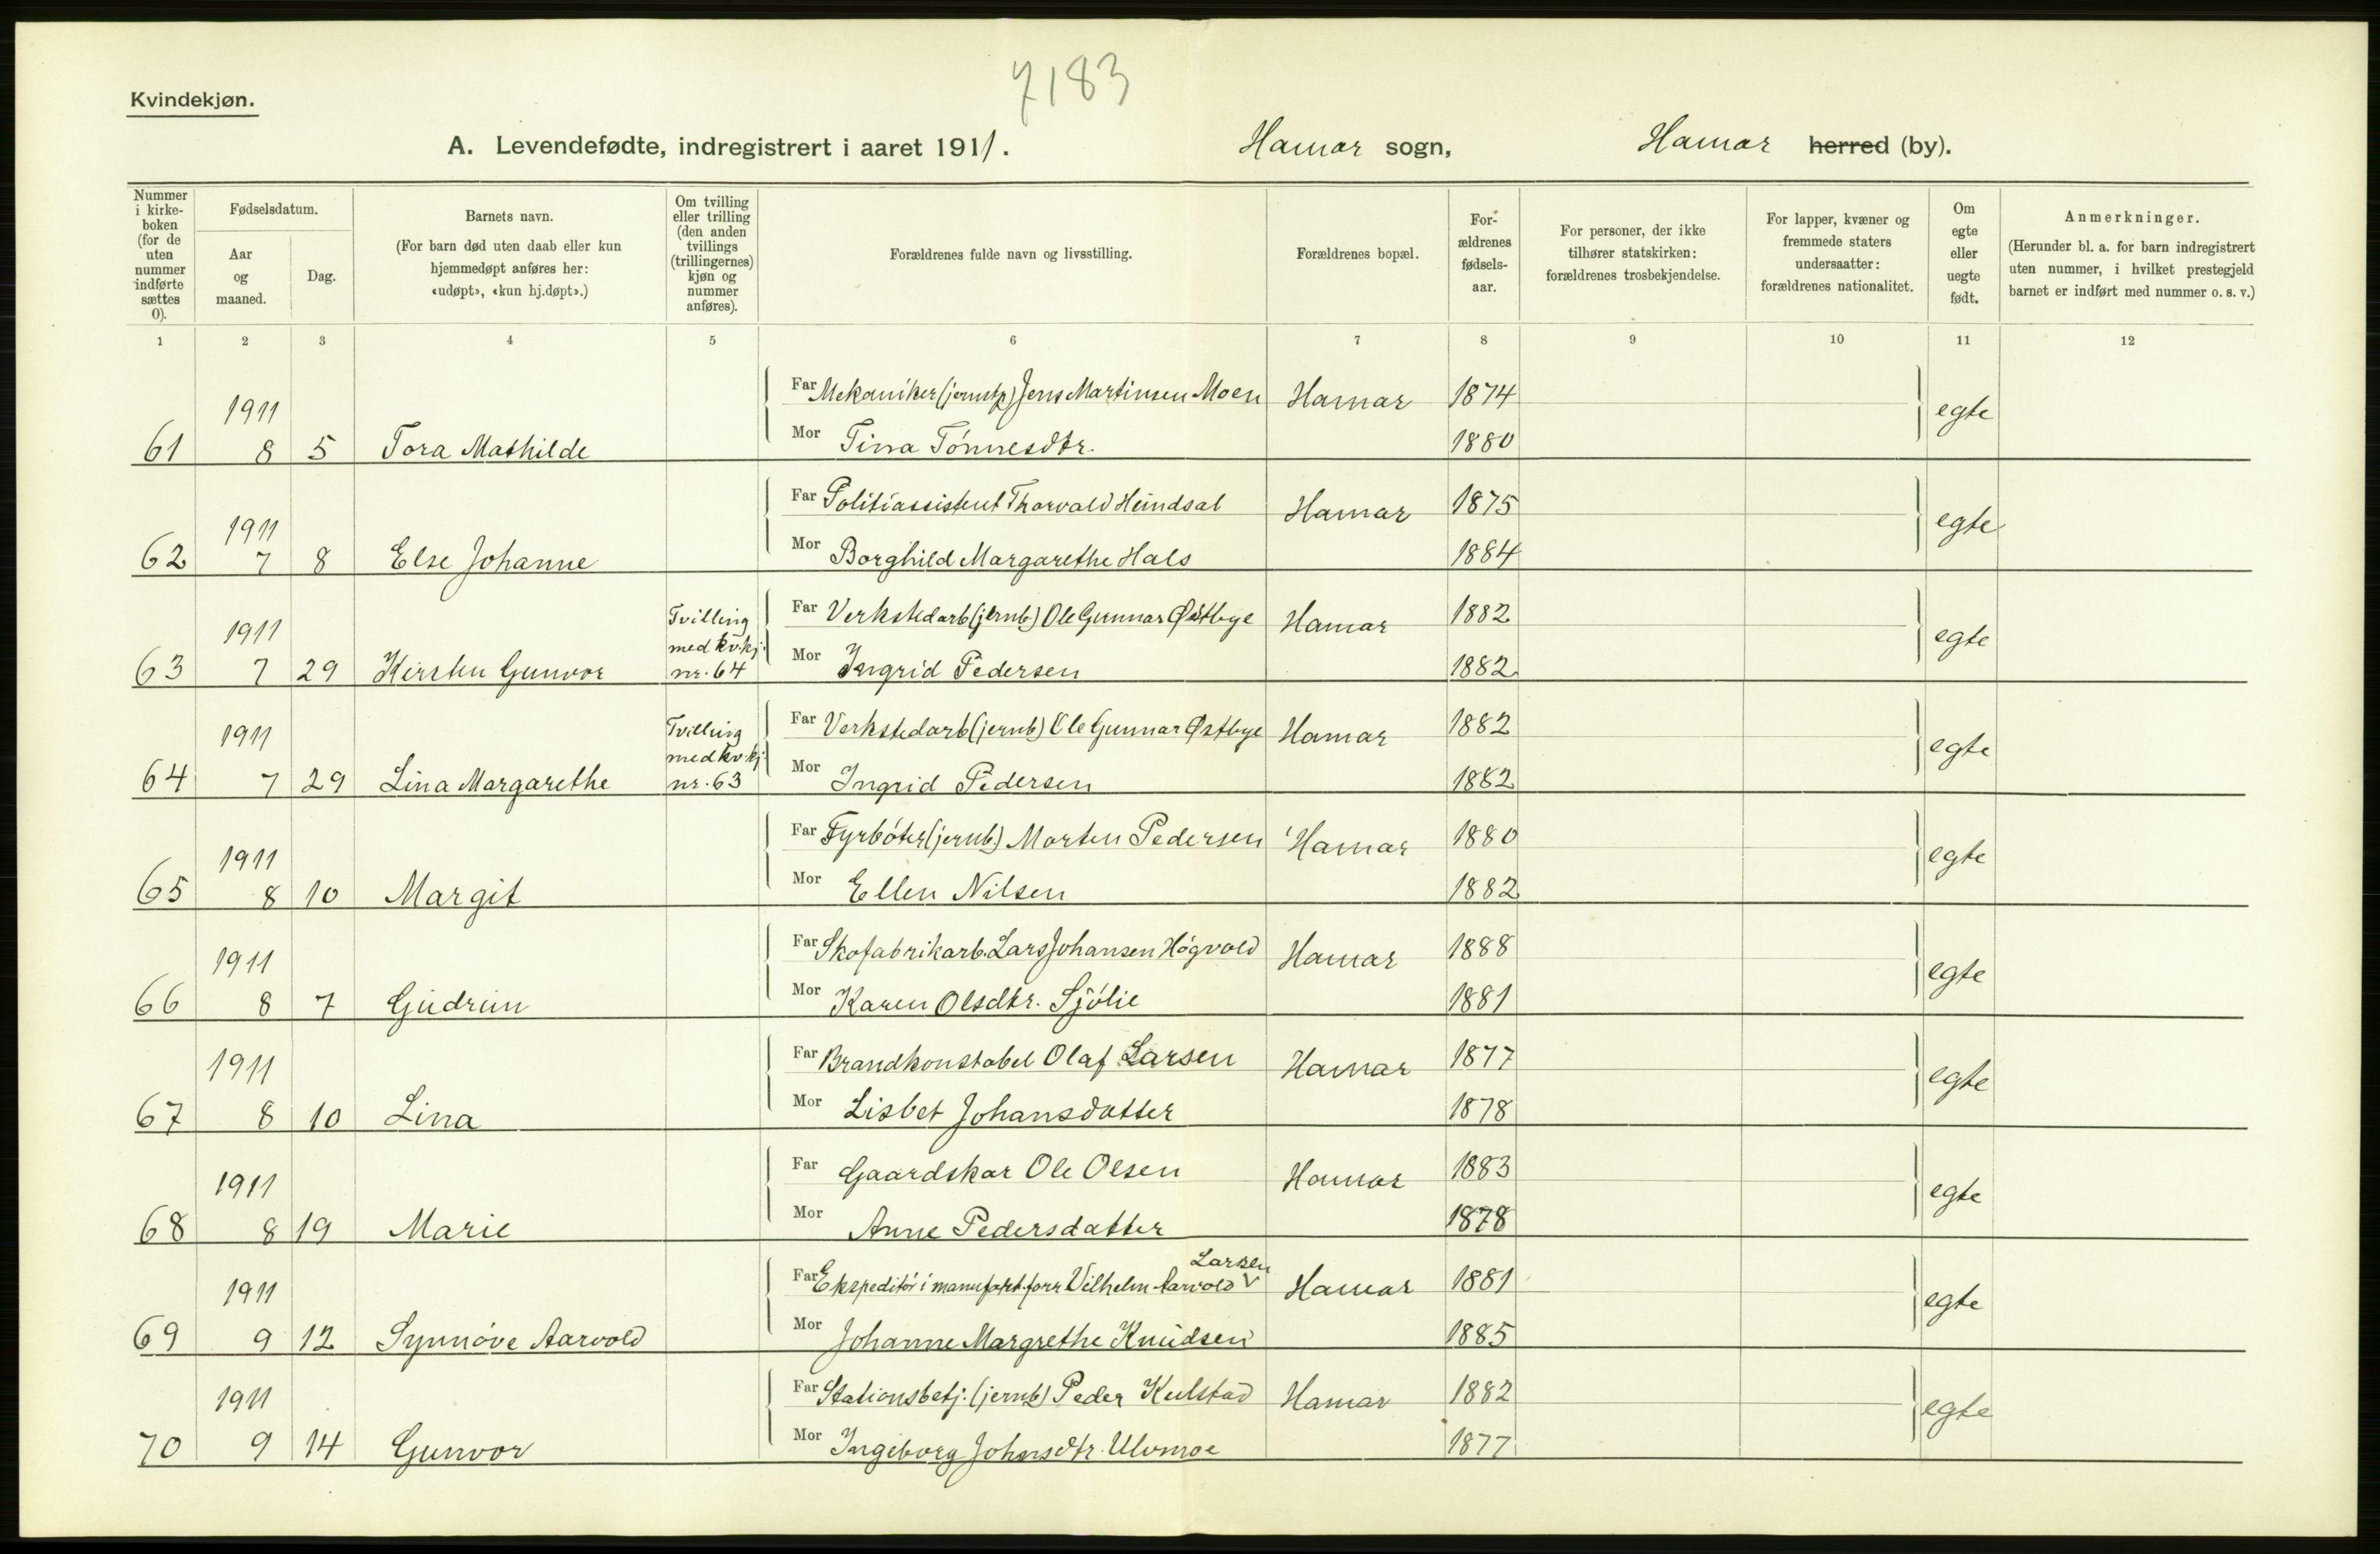 7183
Kvindekjøn.
A. Levendefødte, indregistrert i aaret 1911. Hamar sogn, Hamar herred (by).
Nummer i kirke-boken (for de uten nummer indførte sættes 0).
Fødselsdatum.
Aar og maaned.
Dag.
Barnets navn.
(For barn død uten daab eller kun hjemmedøpt anføres her: «udøpt», «kun hj.døpt».)
Om tvilling eller trilling (den anden tvillings (trillingernes) kjøn og nummer anføres).
Forældrenes fulde navn og livsstilling.
Forældrenes bopæl.
For-ældrenes fødsels-aar.
For personer, der ikke tilhører statskirken: forældrenes trosbekjendelse.
For lapper, kvæner og fremmede staters undersaatter: forældrenes nationalitet.
Om egte eller uegte født.
Anmerkninger.
(Herunder bl. a. for barn indregistrert uten nummer, i hvilket prestegjeld barnet er indført med nummer o. s. v.)
1 2 3 4 5 6 7 8 9 10 11 12
1911 Far Mekaniker (jernb) Jens Martinsen Moen Hamar 1874 egte
61 8 5 Tora Mathilde Mor Tina Tønnesdtr. 1880
1911 Far Politiassistent Thorvald Heindsal Hamar 1875 egte
62 7 8 Else Johanne Mor Borghild Margarethe Hals 1884
1911 Tvilling med kv.kj. Far Verkstedarb (jernb) Ole Gunnar Østbye Hamar 1882 egte
63 7 29 Kirsten Gunvor nr. 64 Mor Ingrid Pedersen 1882
1911 Tvilling med kv.kj. Far Verkstedarb (jernb) Ole Gunnar Østbye Hamar 1882 egte
64 7 29 Lina Margarethe nr. 63 Mor Ingrid Pedersen 1882
1911 Far Fyrbøter (jernb) Morten Pedersen Hamar 1880 egte
65 8 10 Margit Mor Ellen Nilsen 1882
1911 Far Skofabrikarb. Lars Johansen Høgvold Hamar 1888 egte
66 8 7 Gudrun Mor Karen Olsdtr. Sjølie 1881
1911 Far Brandkonstabel Olaf Larsen Hamar 1877 egte
67 8 10 Lina Mor Lisbet Johansdatter 1878
1911 Far Gaardskar Ole Olsen Hamar 1883 egte
68 8 19 Marie Mor Anne Pedersdatter 1878
Larsen
1911 Far Ekspeditør i manufakt.forr Vilhelm Aarvold V Hamar 1881 egte
69 9 12 Synnøve Aarvold Mor Johanne Margrethe Knudsen 1885
1911 Far Stationsbetj. (jernb) Peder Kulstad Hamar 1882 egte
70 9 14 Gunvor Mor Ingeborg Johnsdtr. Ulvmoe 1877